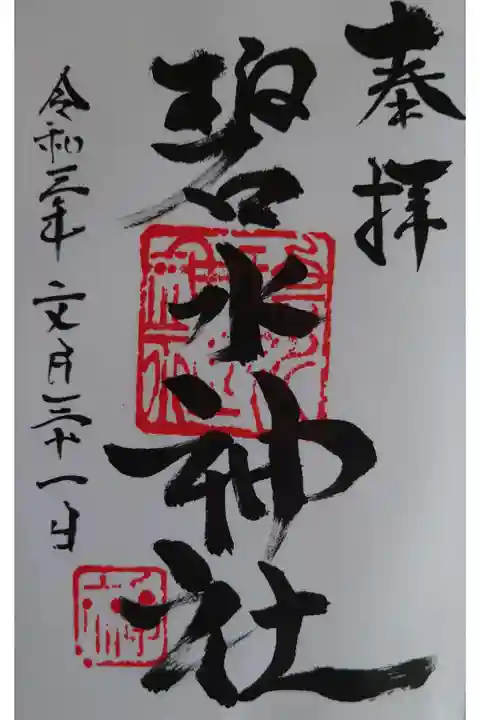 奉拝
碧水神社
令和三年 文月三十一日